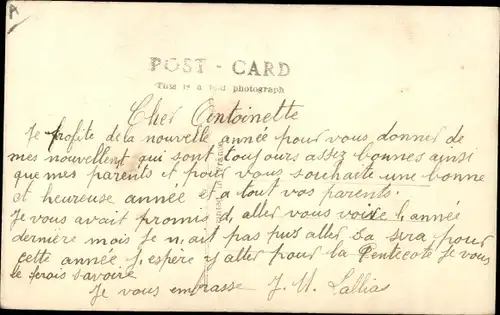 A
POST - CARD
This is a real photograph
Cher Antoinette
Je profite de la nouvelle année pour vous donner de
mes nouvellent qui sont toujours assez bonnes ainsi
que mes parents et pour vous souhaite une bonne
et heureuse année et a tout vos parents.
Je vous avait promis d, aller vous voire l, année
dernière mois Je n, ait pas puz aller Sa sera pour
cette année J, espère y aller pour la Pentecote Je vous
le ferais savoire
Je vous embrasse J. M.